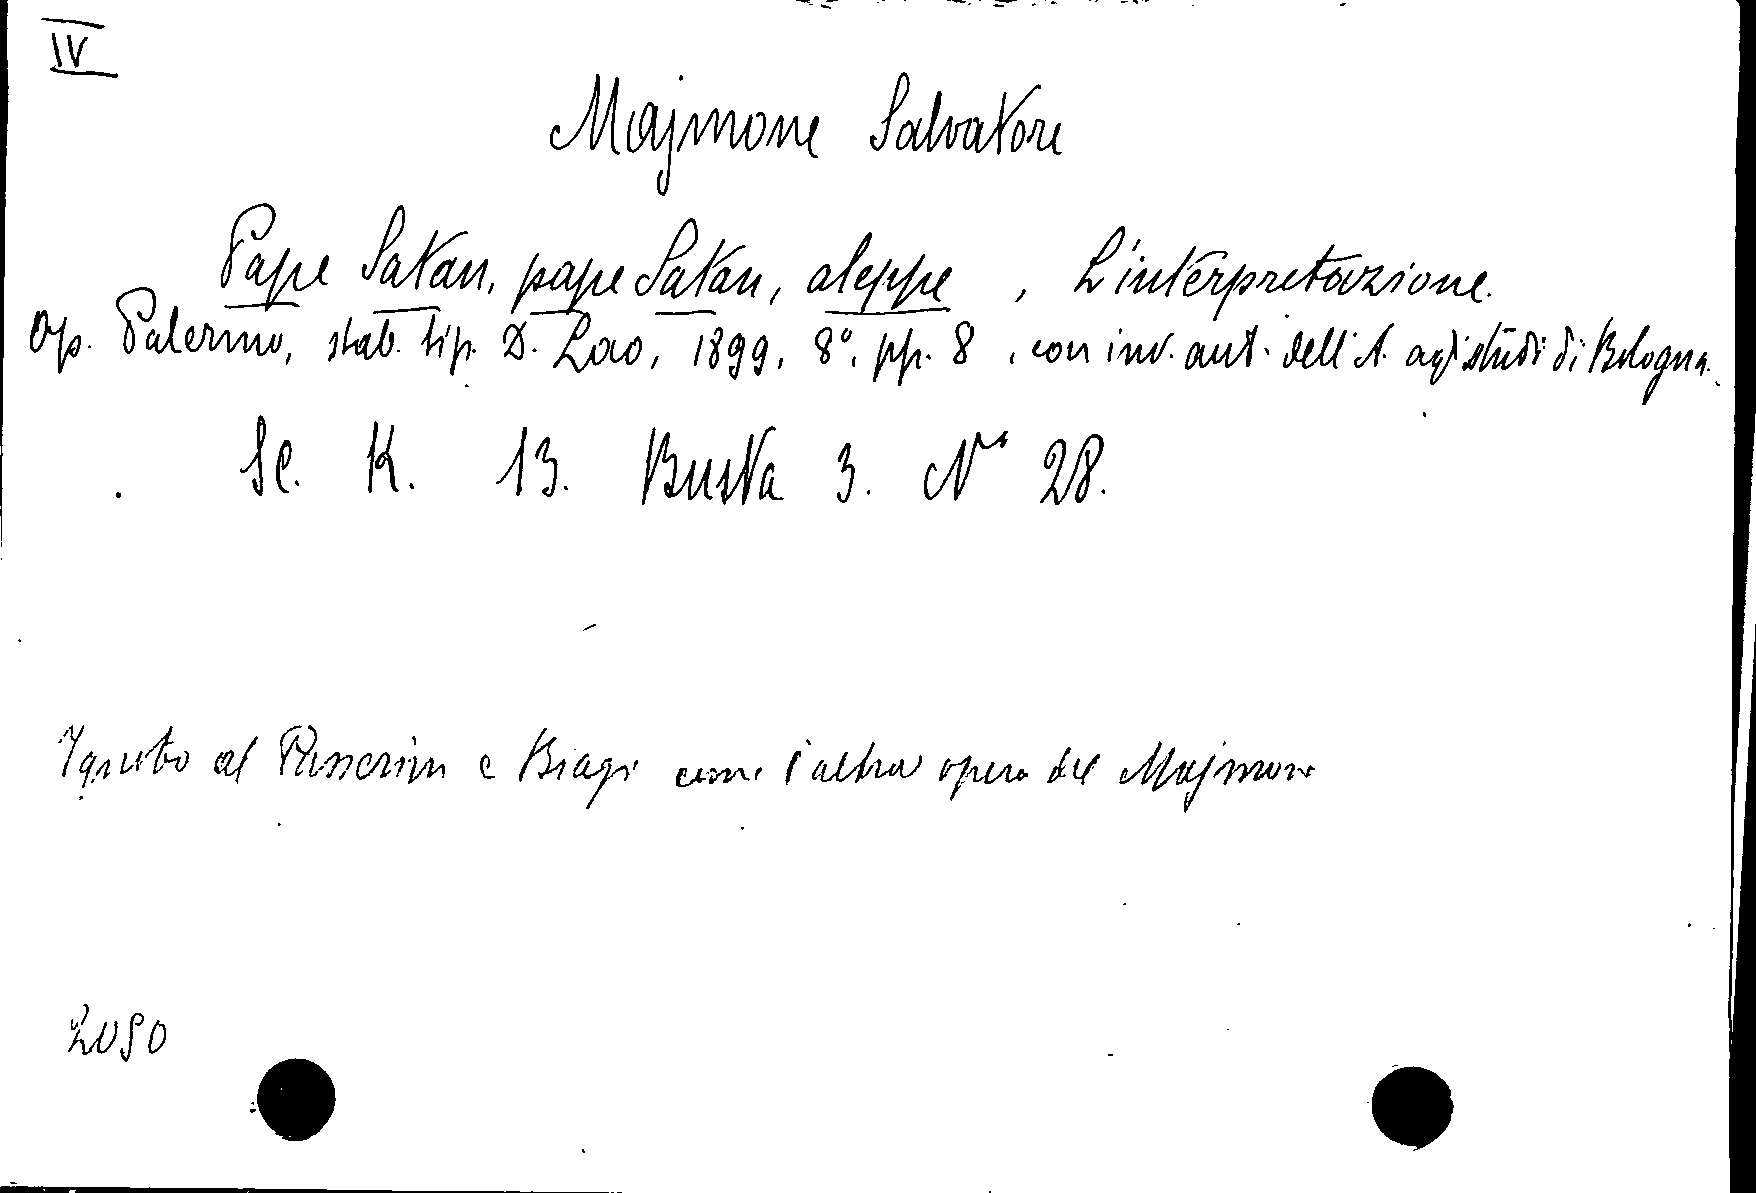 IV
Majmone Salvatore
Pape Satan, pape Satan, aleppe, L'interpretazione.
Op. Palermo, stab. tip. D. Lao, 1899, 8°, pp. 8, con inv. aut. dell'A. agli studi di Bologna.
Sc. K. 13. Busta 3. N° 28.
Ignoto al Passerini e Biagi come l'altra opera del Majmone
2090